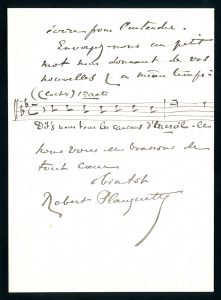 écrire pour l'entendre.
Envoyez-nous un petit
mot nous donnant de vos
nouvelles & en même temps
1er acte
Dit's nous tous les cancans d'
nous vous embrassons de
tout cœur
à bientôt
Robert Planquette